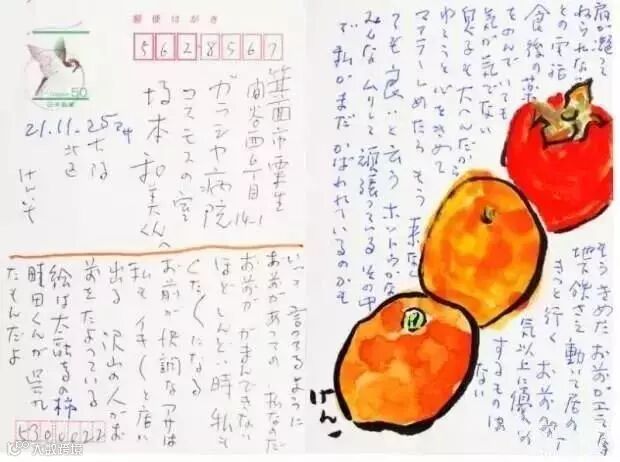 郵便はがき
562-8567
50
日本郵便
21.11.25
大阪
北区
けんぞ
箕面市粟生
間谷西6丁目
14-1
ガラシヤ病院
コスモスの室
坂本和美くんへ
いつも言ってるように
お前があっての私なのだ
お前ががまんできない
ほどしんどい時私も
くたくたになる
お前が快調なアサは
私もイキイキと店に
出る 沢山の人がお
前をたよっている
絵は太融寺の柿
町田くんが呉れ
たもんだよ
530-0022
肩が凝って
ねられない
との電話
食後の薬
をのんでいても
気が気でない
兄ヤも大へんだから
ゆこうと心をきめて
マフラーしめたら もう来なく
ても良いと云う ホントウかな
みんなムリして頑張っている その中
で私がまだかばわれているのかも
もうきめた お前が云うても
地下鉄さえ動いて居れ
きっと行く お前の
気以上に優
するものは
ない
けん
大数跨境